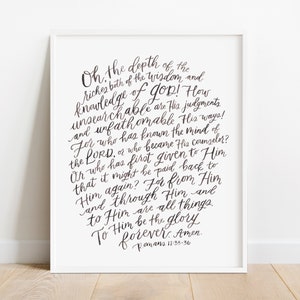 Oh, the depth of the
riches both of the wisdom and
knowledge of God! How
unsearchable are His judgments
and unfathomable His ways!
For who has known the mind of
the LORD, or who became His counselor?
Or who has first given to Him
that it might be paid back to
Him again? For from Him
and through Him and
to Him are all things.
To Him be the glory
forever. Amen.
romans 11:33-36